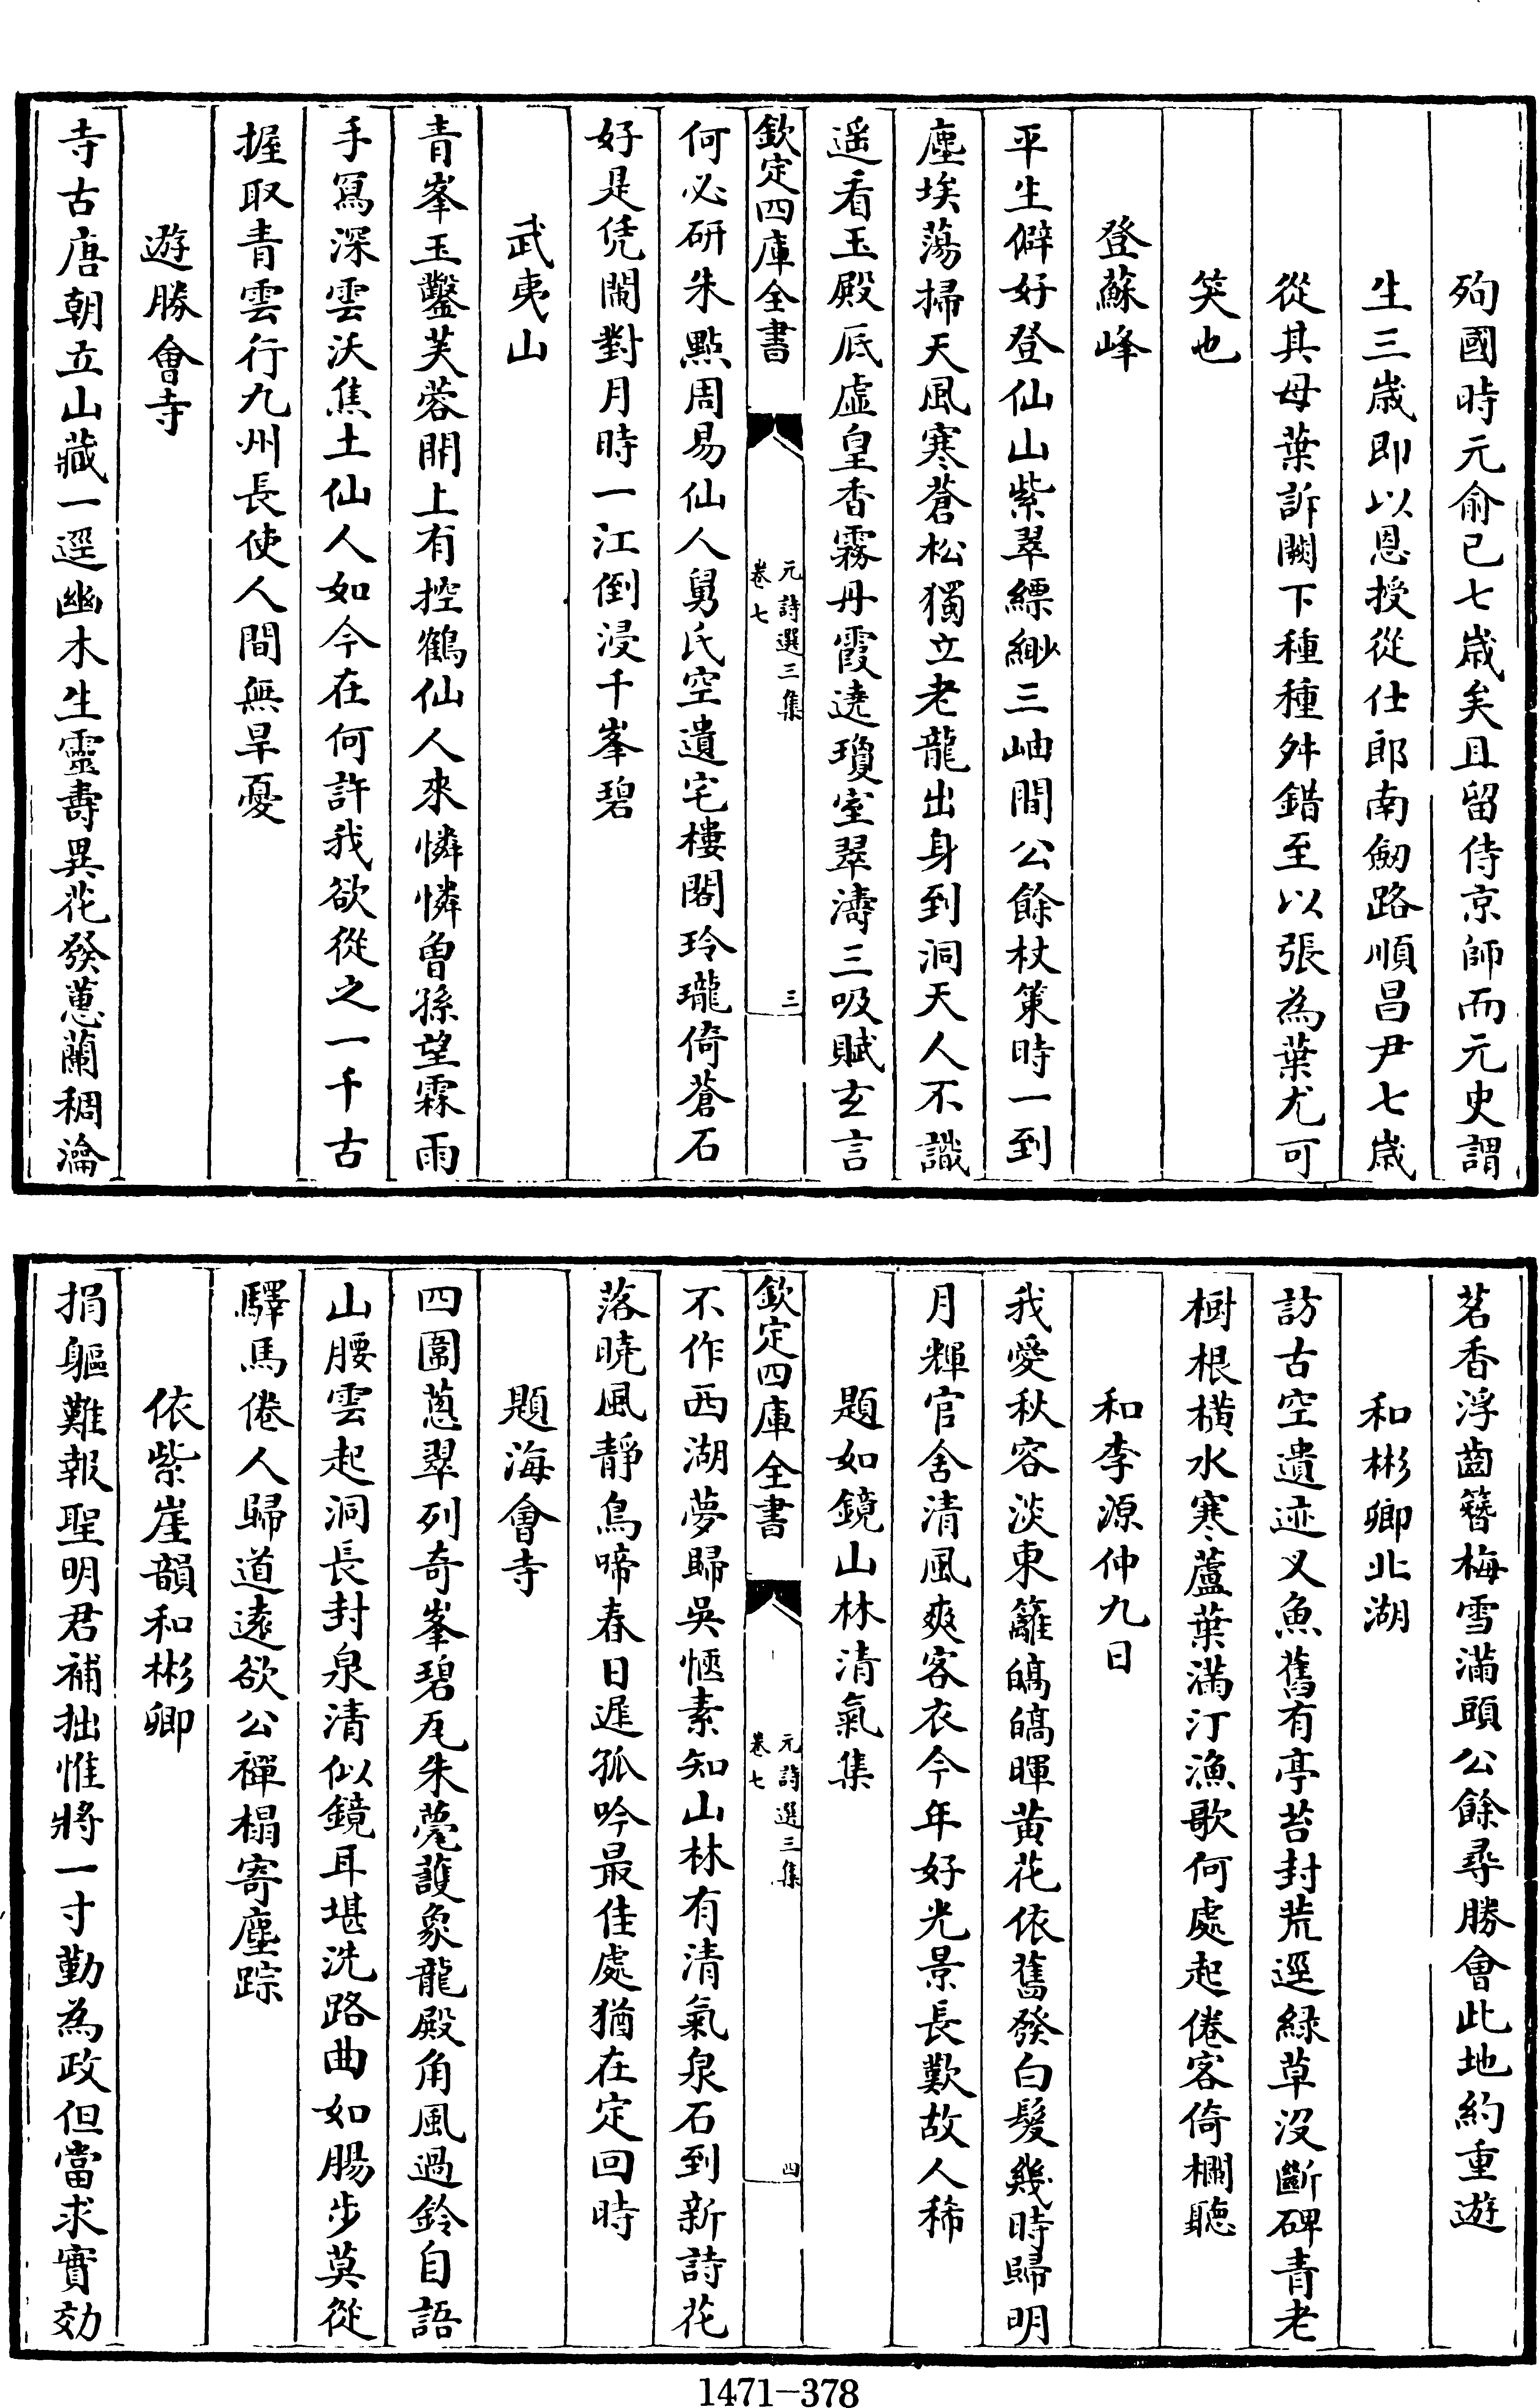 殉國時元俞已七歳矣且留侍京師而元史謂
生三歳即以恩授從仕郎南劒路順昌尹七歳
從其母葉訴闕下種種舛錯至以張為葉尤可
笑也
登蘇峰
平生僻好登仙山紫翠縹緲三岫間公餘杖策時一到
塵埃蕩掃天風寒蒼松獨立老龍出身到洞天人不識
遥看玉殿底虛皇香霧丹霞遶瓊室翠濤三吸賦玄言
欽定四庫全書
元詩選三集
卷七
三
何必研朱㸃周易仙人舅氏空遺宅樓閣玲瓏倚蒼石
好是凭闌對月時一江倒浸千峯碧
武夷山
青峯玉鑿芙蓉開上有控鶴仙人來憐憐曽孫望霖雨
手寫深雲沃焦土仙人如今在何許我欲從之一千古
握取青雲行九州長使人間無旱憂
遊勝會寺
寺古唐朝立山藏一逕幽木生靈壽異花發蕙蘭稠瀹
茗香浮齒簪梅雪滿頭公餘尋勝會此地約重遊
和彬卿北湖
訪古空遺迹叉魚舊有亭苔封荒逕緑草没斷碑青老
樹根横水寒蘆葉滿汀漁歌何處起倦客倚欄聽
和李源仲九日
我愛秋容淡東籬皜皜暉黄花依舊發白髪幾時歸明
月輝官舍清風爽客衣今年好光景長歎故人稀
題如鏡山林清氣集
欽定四庫全書
元詩選三集
卷七
四
不作西湖夢歸吳愜素知山林有清氣泉石到新詩花
落曉風靜鳥啼春日遲孤吟最佳處猶在定回時
題海會寺
四圍蔥翠列奇峯碧瓦朱甍護象龍殿角風過鈴自語
山腰雲起洞長封泉清似鏡耳堪洗路曲如腸步莫從
驛馬倦人歸道遠欲公禪榻寄塵踪
依紫崖韻和彬卿
捐軀難報聖明君補拙惟將一寸勤為政但當求實効
1471-378